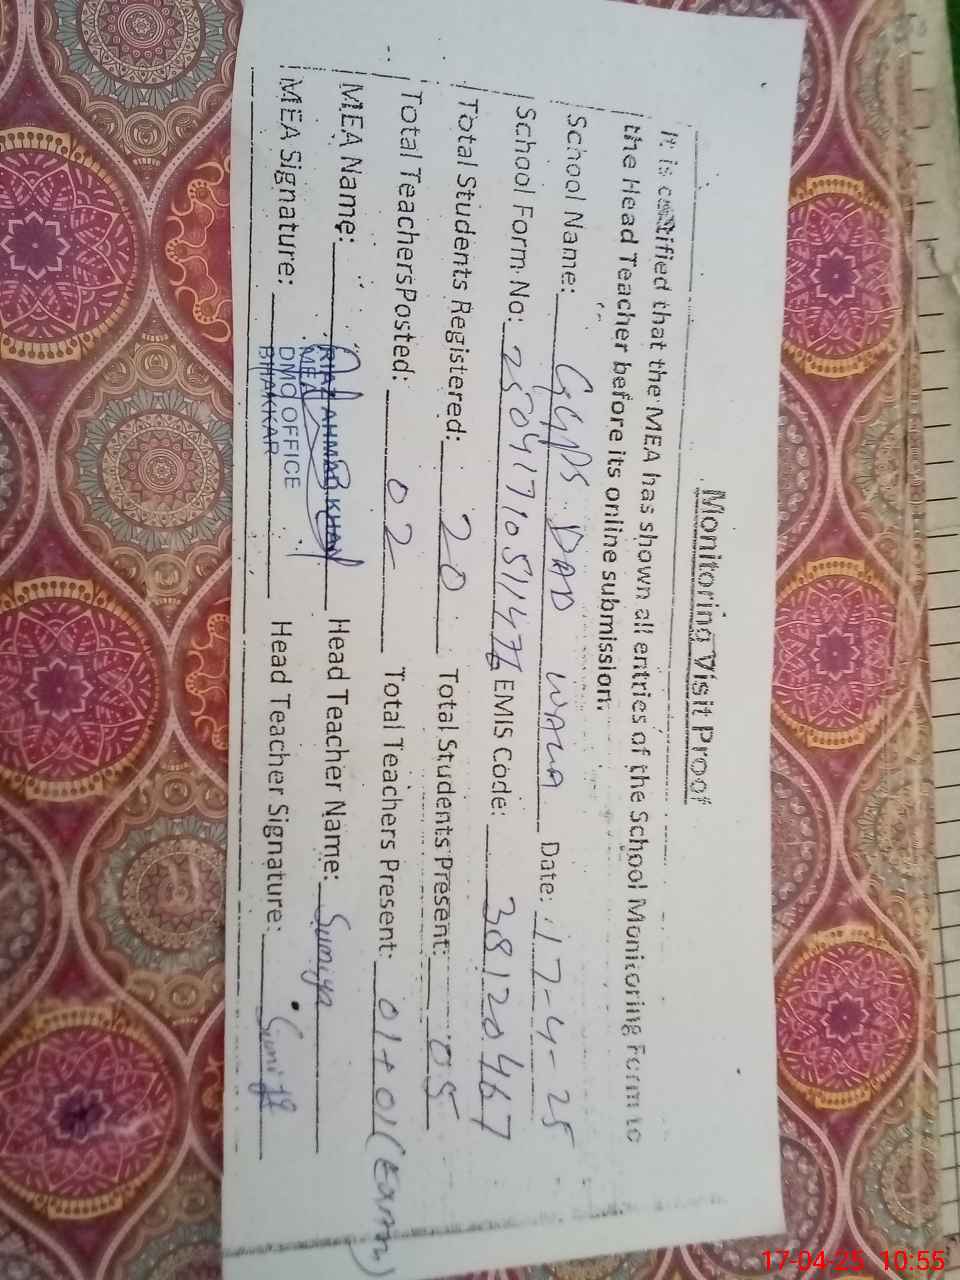 Monitoring Visit Proof
It is certified that the MEA has shown all entries of the School Monitoring Form to
the Head Teacher before its online submission.
School Name: GGPS DAD WALA Date: 17-4-25
School Form No: EMIS Code: 38120467
Total Students Registered: 20 Total Students Present: 05
Total Teachers Posted: 02 Total Teachers Present: 01+01 (Exam)
MEA Name: RIAZ AHMAD KHAN Head Teacher Name: Sumiya
MEA
MEA Signature: DMO OFFICE Head Teacher Signature:
BHAKKAR
17-04-25 10:55